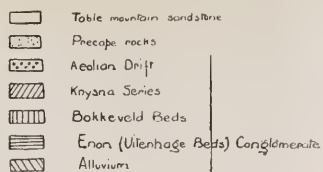 Table mountain sandstone
Precape rocks
Aeolian Drift
Knysna Series
Bokkeveld Beds
Enon (Uitenhage Beds) Conglomerate
Alluvium